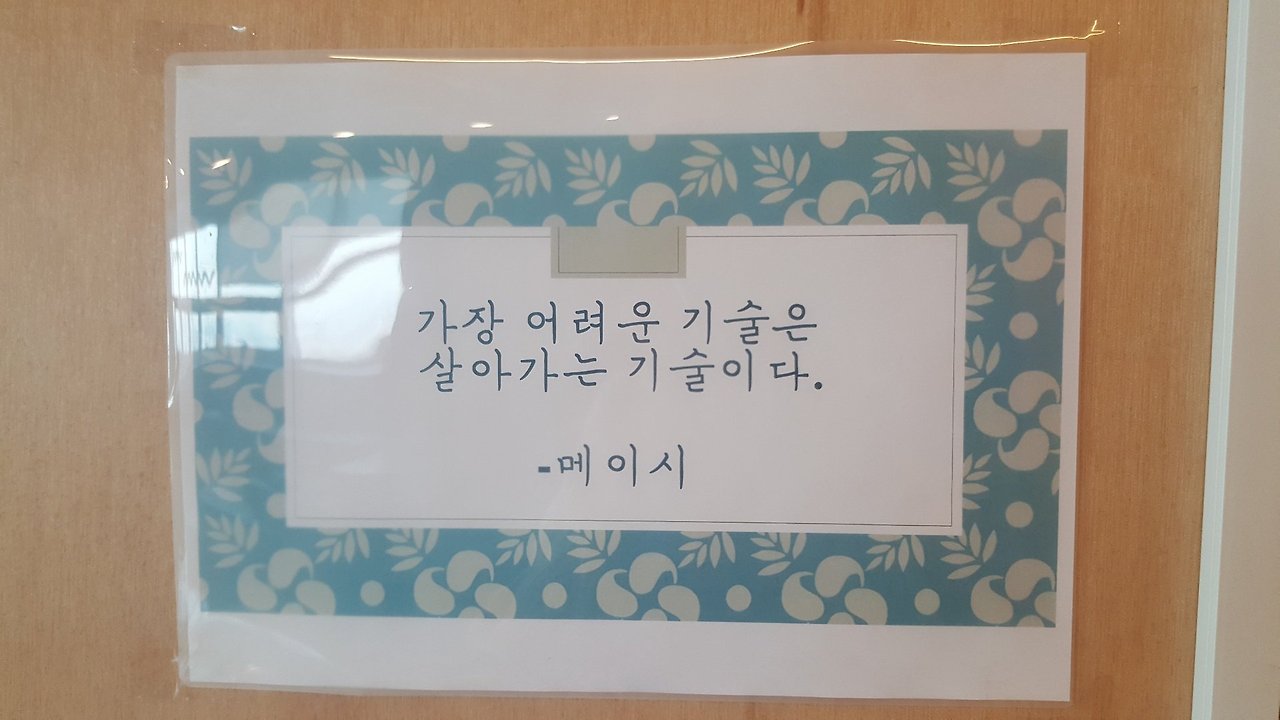 가장 어려운 기술은
살아가는 기술이다.
-메이시